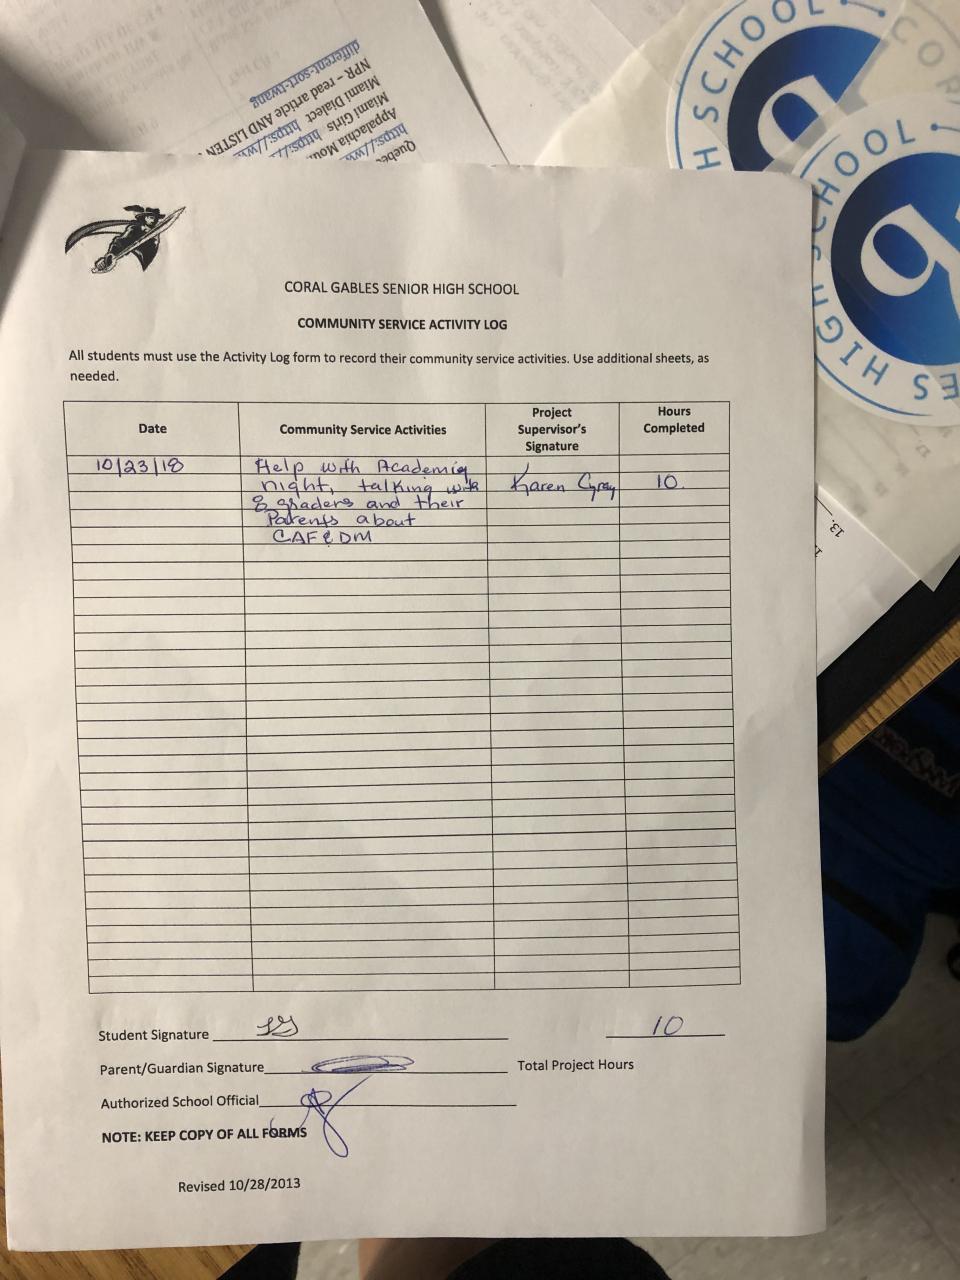 different-sort-twang
NPR – read article AND LISTEN
Miami Dialect https://ww
Miami Girls https://
Appalachia Mou
https://ww
Quebe
H SCHOOL
COR
ES HIGH SCHOOL
g
g
13.
12.
CORAL GABLES SENIOR HIGH SCHOOL
COMMUNITY SERVICE ACTIVITY LOG
All students must use the Activity Log form to record their community service activities. Use additional sheets, as
needed.
Date Community Service Activities Project Supervisor's Signature Hours Completed
10/23/18 Help with Academic
night, talking with Karen Gray 10.
8 graders and their
Parents about
CAF & DM
Student Signature
10
Parent/Guardian Signature Total Project Hours
Authorized School Official
NOTE: KEEP COPY OF ALL FORMS
Revised 10/28/2013